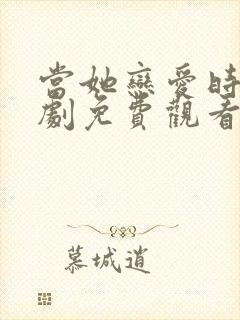 當她戀愛時
劇免費觀看
慕城逍